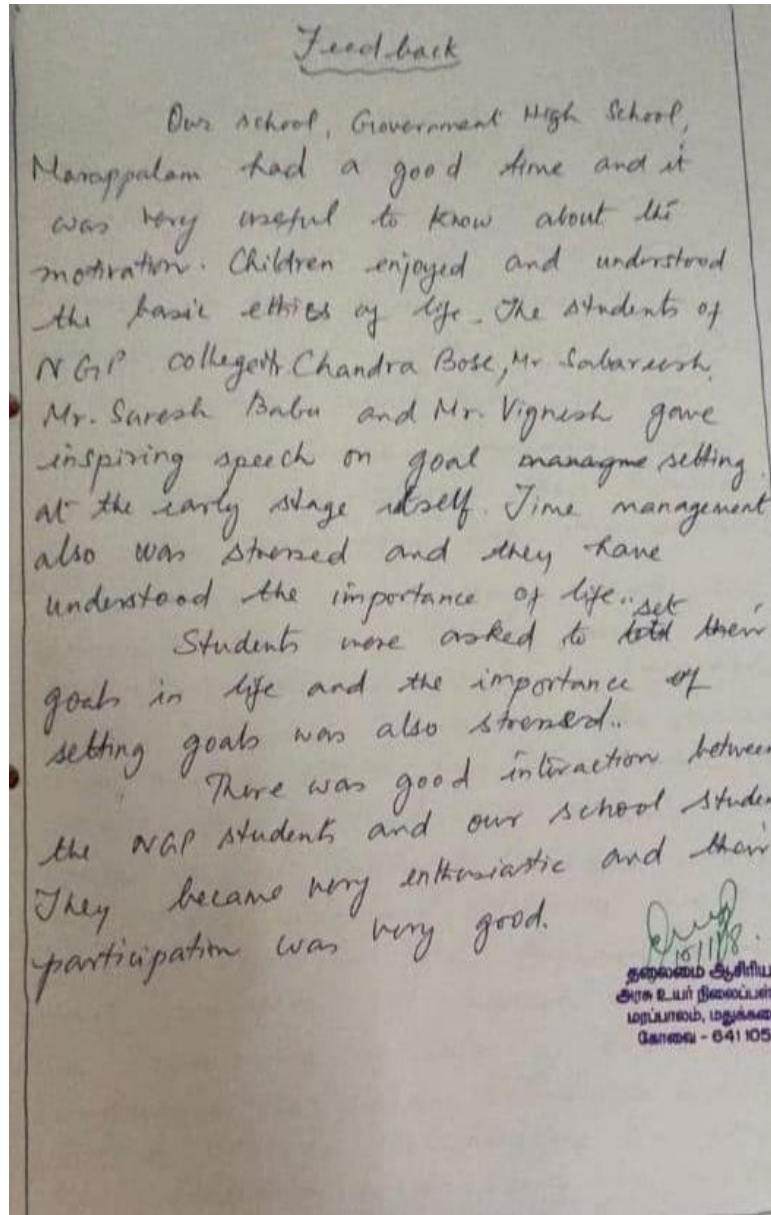 Feedback
Our school, Government High School,
Marappalam had a good time and it
was very useful to know about the
motivation. Children enjoyed and understood
the basic ethics of life. The students of
NGP college Chandra Bose, Mr Sabareesh,
Mr. Suresh Babu and Mr. Vignesh gave
inspiring speech on goal setting
at the early stage itself. Time management
also was stressed and they have
understood the importance of life..
Students were asked to set their
goals in life and the importance of
setting goals was also stressed..
There was good interaction between
the NGP students and our school studen
They became very enthusiastic and their
participation was very good.
தலைமை ஆசிரிய
அரசு உயர் நிலைப்பள்
மரப்பாலம், மதுக்கரை
கோவை - 641 105